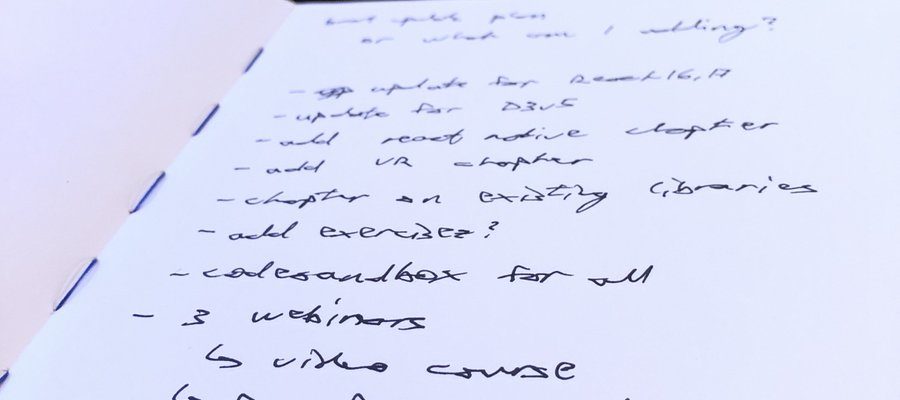 update plan
or what am I adding?
- update for React 16, 17
- update for D3v5
- add react native chapter
- add VR chapter
- chapter on existing libraries
- add exercises?
- codesandbox for all
- 3 webinars
↳ video course